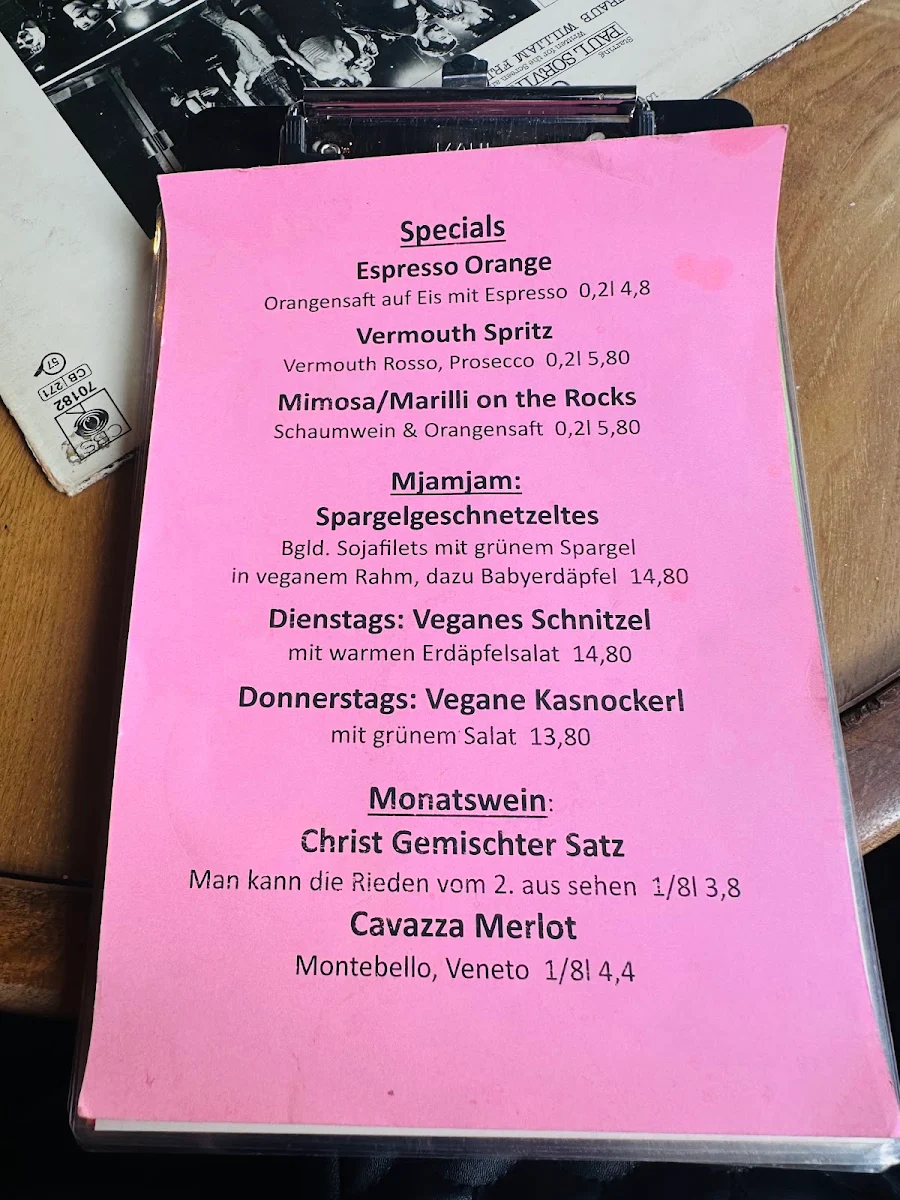 Starring
Written for the Screen a
PAUL SORVI
RAUB WILLIAM FR
57
CB 271
70182
CBS
Specials
Espresso Orange
Orangensaft auf Eis mit Espresso 0,2l 4,8
Vermouth Spritz
Vermouth Rosso, Prosecco 0,2l 5,80
Mimosa/Marilli on the Rocks
Schaumwein & Orangensaft 0,2l 5,80
Mjamjam:
Spargelgeschnetzeltes
Bgld. Sojafilets mit grünem Spargel
in veganem Rahm, dazu Babyerdäpfel 14,80
Dienstags: Veganes Schnitzel
mit warmen Erdäpfelsalat 14,80
Donnerstags: Vegane Kasnockerl
mit grünem Salat 13,80
Monatswein:
Christ Gemischter Satz
Man kann die Rieden vom 2. aus sehen 1/8l 3,8
Cavazza Merlot
Montebello, Veneto 1/8l 4,4